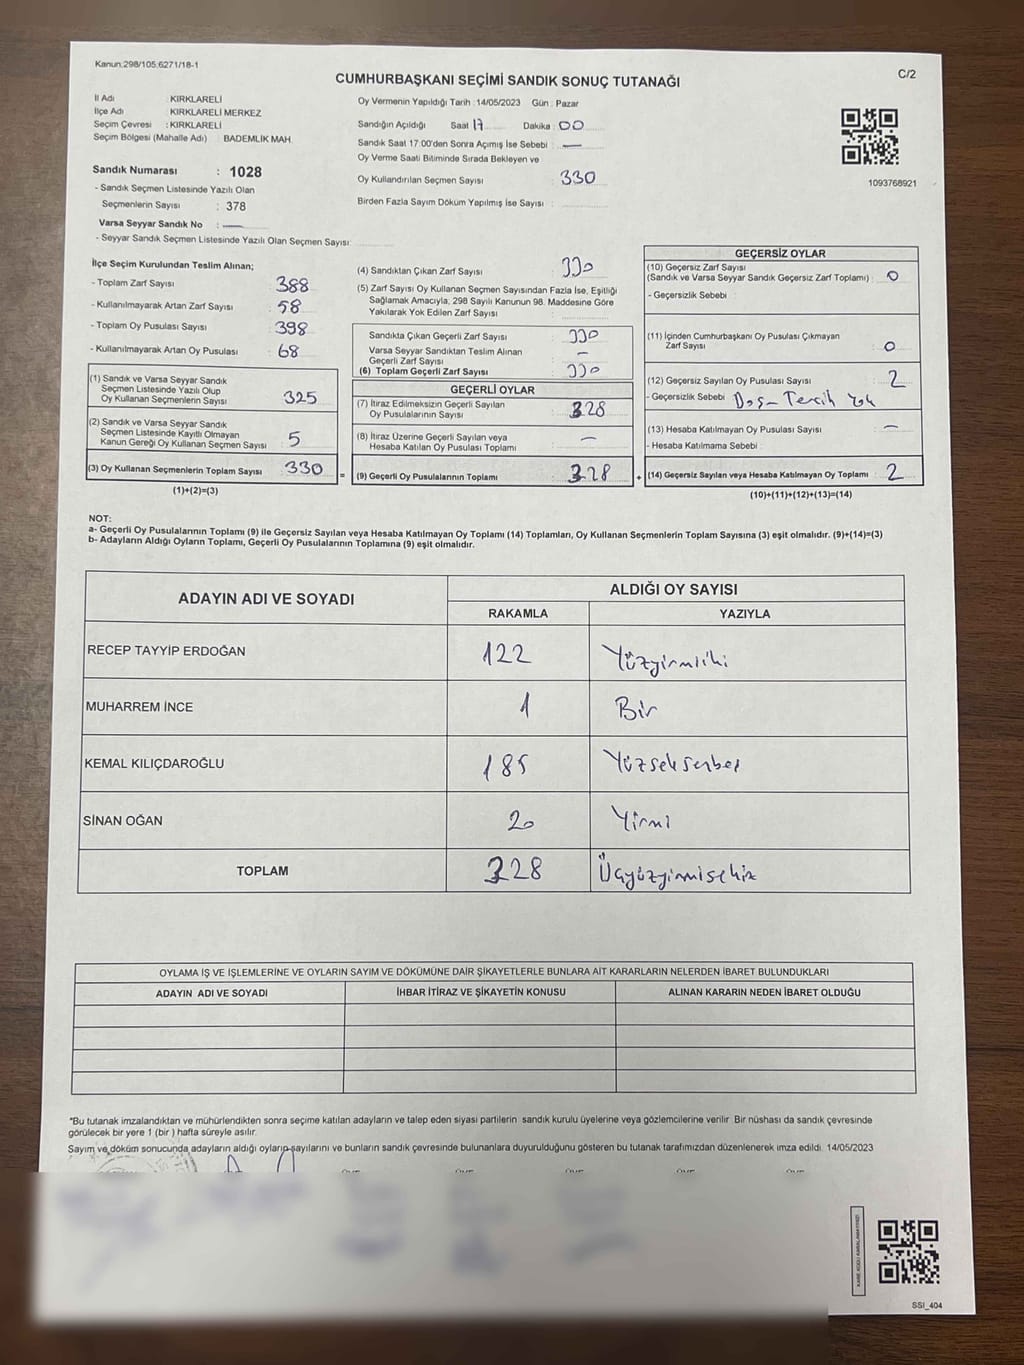 Kanun.298/105.6271/18-1
C/2
CUMHURBAŞKANI SEÇİMİ SANDIK SONUÇ TUTANAĞI
İl Adı : KIRKLARELİ
İlçe Adı : KIRKLARELİ MERKEZ
Seçim Çevresi : KIRKLARELİ
Seçim Bölgesi (Mahalle Adı) : BADEMLİK MAH.
Sandık Numarası : 1028
- Sandık Seçmen Listesinde Yazılı Olan
Seçmenlerin Sayısı : 378
Varsa Seyyar Sandık No : —
- Seyyar Sandık Seçmen Listesinde Yazılı Olan Seçmen Sayısı:
Oy Vermenin Yapıldığı Tarih : 14/05/2023 Gün : Pazar
Sandığın Açıldığı Saat 17 Dakika : 00
Sandık Saat 17:00'den Sonra Açımış İse Sebebi : —
Oy Verme Saati Bitiminde Sırada Bekleyen ve
Oy Kullandırılan Seçmen Sayısı : 330
Birden Fazla Sayım Döküm Yapılmış İse Sayısı :
1093768921
İlçe Seçim Kurulundan Teslim Alınan;
- Toplam Zarf Sayısı : 388
- Kullanılmayarak Artan Zarf Sayısı : 58
- Toplam Oy Pusulası Sayısı : 398
- Kullanılmayarak Artan Oy Pusulası : 68
(1) Sandık ve Varsa Seyyar Sandık
Seçmen Listesinde Yazılı Olup
Oy Kullanan Seçmenlerin Sayısı : 325
(2) Sandık ve Varsa Seyyar Sandık
Seçmen Listesinde Kayıtlı Olmayan
Kanun Gereği Oy Kullanan Seçmen Sayısı : 5
(3) Oy Kullanan Seçmenlerin Toplam Sayısı : 330
(1)+(2)=(3)
=
(4) Sandıktan Çıkan Zarf Sayısı : 330
(5) Zarf Sayısı Oy Kullanan Seçmen Sayısından Fazla İse, Eşitliği
Sağlamak Amacıyla, 298 Sayılı Kanunun 98. Maddesine Göre
Yakılarak Yok Edilen Zarf Sayısı :
Sandıkta Çıkan Geçerli Zarf Sayısı : 330
Varsa Seyyar Sandıktan Teslim Alınan
Geçerli Zarf Sayısı : —
(6) Toplam Geçerli Zarf Sayısı : 330
GEÇERLİ OYLAR
(7) İtiraz Edilmeksizin Geçerli Sayılan
Oy Pusulalarının Sayısı : 328
(8) İtiraz Üzerine Geçerli Sayılan veya
Hesaba Katılan Oy Pusulası Toplamı : —
(9) Geçerli Oy Pusulalarının Toplamı : 328
+
GEÇERSİZ OYLAR
(10) Geçersiz Zarf Sayısı
(Sandık ve Varsa Seyyar Sandık Geçersiz Zarf Toplamı) : 0
- Geçersizlik Sebebi :
(11) İçinden Cumhurbaşkanı Oy Pusulası Çıkmayan
Zarf Sayısı : 0
(12) Geçersiz Sayılan Oy Pusulası Sayısı : 2
- Geçersizlik Sebebi : Boş - Tercih Yok
(13) Hesaba Katılmayan Oy Pusulası Sayısı : —
- Hesaba Katılmama Sebebi :
(14) Geçersiz Sayılan veya Hesaba Katılmayan Oy Toplamı : 2
(10)+(11)+(12)+(13)=(14)
NOT:
a- Geçerli Oy Pusulalarının Toplamı (9) ile Geçersiz Sayılan veya Hesaba Katılmayan Oy Toplamı (14) Toplamları, Oy Kullanan Seçmenlerin Toplam Sayısına (3) eşit olmalıdır. (9)+(14)=(3)
b- Adayların Aldığı Oyların Toplamı, Geçerli Oy Pusulalarının Toplamına (9) eşit olmalıdır.
ADAYIN ADI VE SOYADI
ALDIĞI OY SAYISI
RAKAMLA YAZIYLA
RECEP TAYYİP ERDOĞAN 122 Yüzyirmiiki
MUHARREM İNCE 1 Bir
KEMAL KILIÇDAROĞLU 185 Yüzseksenbeş
SİNAN OĞAN 20 Yirmi
TOPLAM 328 Üçyüzyirmisekiz
OYLAMA İŞ VE İŞLEMLERİNE VE OYLARIN SAYIM VE DÖKÜMÜNE DAİR ŞİKAYETLERLE BUNLARA AİT KARARLARIN NELERDEN İBARET BULUNDUKLARI
ADAYIN ADI VE SOYADI İHBAR İTİRAZ VE ŞİKAYETİN KONUSU ALINAN KARARIN NEDEN İBARET OLDUĞU
*Bu tutanak imzalandıktan ve mühürlendikten sonra seçime katılan adayların ve talep eden siyasi partilerin sandık kurulu üyelerine veya gözlemcilerine verilir. Bir nüshası da sandık çevresinde
görülecek bir yere 1 (bir ) hafta süreyle asılır.
Sayım ve döküm sonucunda adayların aldığı oyların sayılarını ve bunların sandık çevresinde bulunanlara duyurulduğunu gösteren bu tutanak tarafımızdan düzenlenerek imza edildi. 14/05/2023
SSI_404